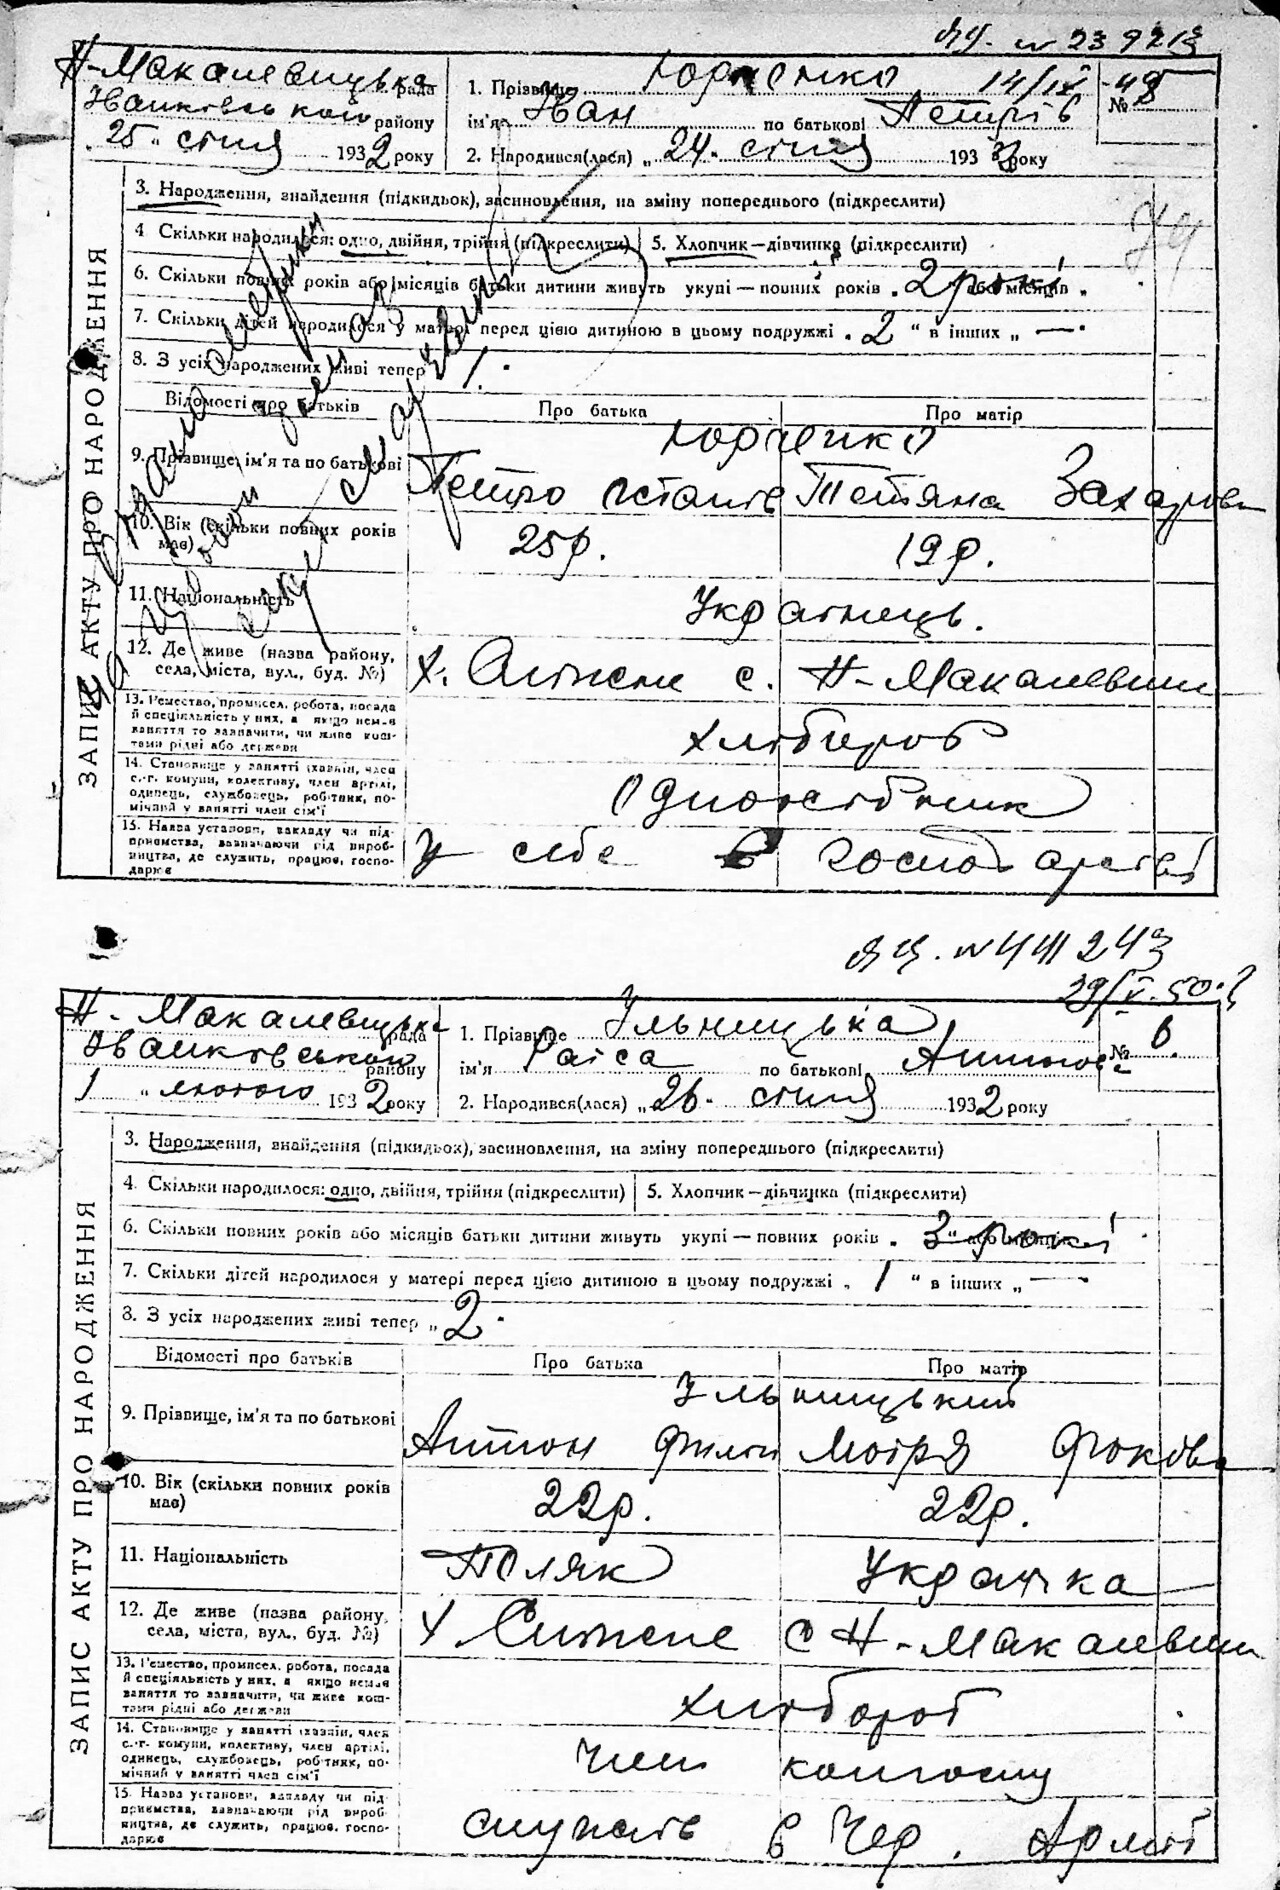 № 239213
Н-Макалевицька рада
Іванківського району
"25" січня 1932 року
1. Прізвище Юрченко 14/IV
ім'я Іван по батькові Петрів
2. Народився(лася) "24" січня 1932 року
№
3. Народження, знайдення (підкидьок), засиновлення, на зміну попереднього (підкреслити)
4 Скільки народилося: одно, двійня, трійня (підкреслити) 5. Хлопчик—дівчинка (підкреслити)
6. Скільки повних років або місяців батьки дитини живуть укупі—повних років 2 роки або місяців
7. Скільки дітей народилося у матері перед цією дитиною в цьому подружжі 2 " в інших " —
8. З усіх народжених живі тепер 1.
Відомості про батьків Про батька Про матір
Юрченко
9. Прізвище, ім'я та по батькові Петро Остапів Тетяна Захарова
10. Вік (скільки повних років має) 25р. 19р.
11. Національність Українець.
12. Де живе (назва району, села, міста, вул., буд. №) х. с. Н-Макалевичи
13. Ремество, промисел, робота, посада й спеціяльність у них, а якщо немає заняття то зазначити, чи живе коштами рідні або держави Хлібороб
14. Становище у занятті (хазяїн, член с.-г. комуни, колективу, член артілі, одинець, службовець, робітник, помічний у занятті член сім'ї Одноосібник
15. Назва установи, закладу чи підприємства, зазначаючи рід виробництва, де служить, працює, господарює У себе в господарстві
ЗАПИС АКТУ ПРО НАРОДЖЕННЯ
№ 441243
29/V.50.
Н-Макалевицька рада
Іванківського району
1 " лютого 1932 року
1. Прізвище Ульницька
ім'я Раїса по батькові Антонов
№ 6.
2. Народився(лася) "26" січня 1932 року
3. Народження, знайдення (підкидьок), засиновлення, на зміну попереднього (підкреслити)
4. Скільки народилося: одно, двійня, трійня (підкреслити) 5. Хлопчик—дівчинка (підкреслити)
6. Скільки повних років або місяців батьки дитини живуть укупі—повних років 3 роки
7. Скільки дітей народилося у матері перед цією дитиною в цьому подружжі 1 " в інших " —
8. З усіх народжених живі тепер " 2.
Відомості про батьків Про батька Про матір
Ульницький
9. Прізвище, ім'я та по батькові Антон Филип Мотря Фокова
10. Вік (скільки повних років має) 22р. 22р.
11. Національність Поляк Українка
12. Де живе (назва району, села, міста, вул., буд. №) х. с Н-Макалевичи
13. Ремество, промисел, робота, посада й спеціяльність у них, а якщо немає заняття то зазначити, чи живе коштами рідні або держави Хлібороб
14. Становище у занятті (хазяїн, член с.-г. комуни, колективу, член артілі, одинець, службовець, робітник, помічний у занятті член сім'ї Член колгоспу
15. Назва установи, закладу чи підприємства, зазначаючи рід виробництва, де служить, працює, господарює служить в Чер. Армії
ЗАПИС АКТУ ПРО НАРОДЖЕННЯ